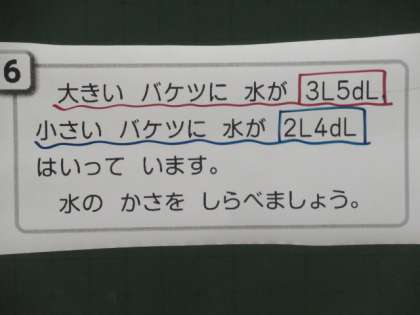 6
大きい バケツに 水が 3L5dL,
小さい バケツに 水が 2L4dL
はいって います。
水の かさを しらべましょう。